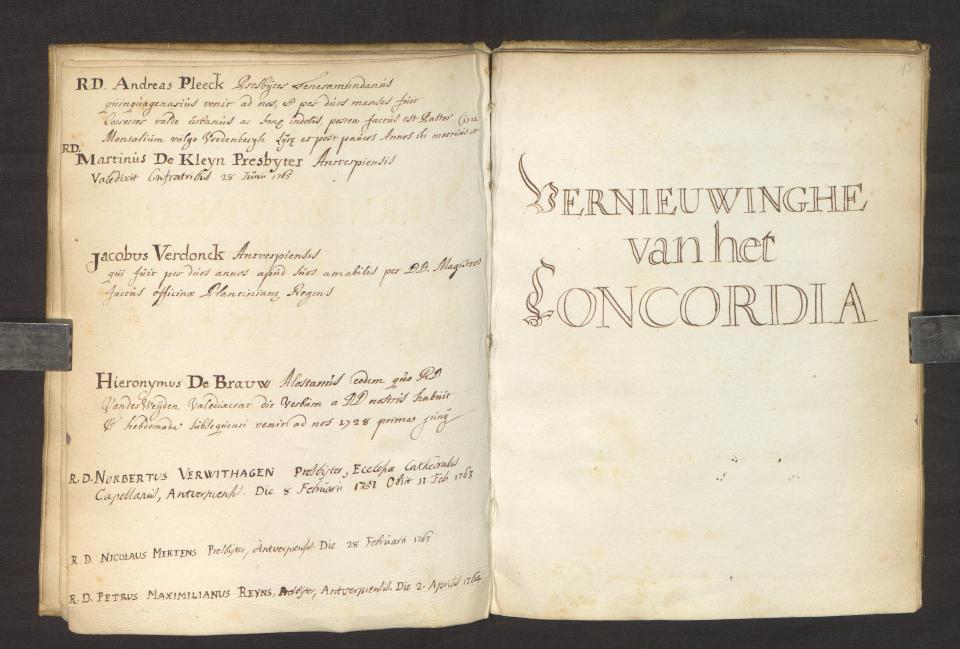 R.D. Andreas Pleeck Presbÿter Teneramundanus
quinquagenarius venit ad nos, et per duos menses fuit
Corrector valde urbanus ac bonę indolis postea factus est Pastor
Monsalium vulgo Vredenbergh Lÿrę et post paucos Annos ibi mortuus est
RD.
Martinus De Kleyn Presbyter Antverpiensis
Valedixit Confratribus 28 Junii 1763
Jacobus Verdonck Antverpiensis
qui fuit per duos annos apud suos amabilis per DD. Magistros
factus officinæ Plantinianę Regens
Hieronymus De Brauw Alostanus eodem quo RD
Vander Weÿden Valedixerat die Verbum a DD nostris habuit
& hebdomada subsequenti venit ad nos 1728 prima junÿ
R.D. NORBERTUS VERWITHAGEN Presbÿter, Ecclesiæ Cathedralis
Capellanus, Antverpiensis. Die 8 Februarii 1751 Obiit 11. Feb 1763
R.D. NICOLAUS MERTENS Presbÿter, Antverpiensis. Die 28 Februarii 1763
R.D. PETRUS MAXIMILIANUS REYNS, Presbÿter, Antverpiensis. Die 2. Aprilis 1764
13
VERNIEUWINGHE
van het
CONCORDIA